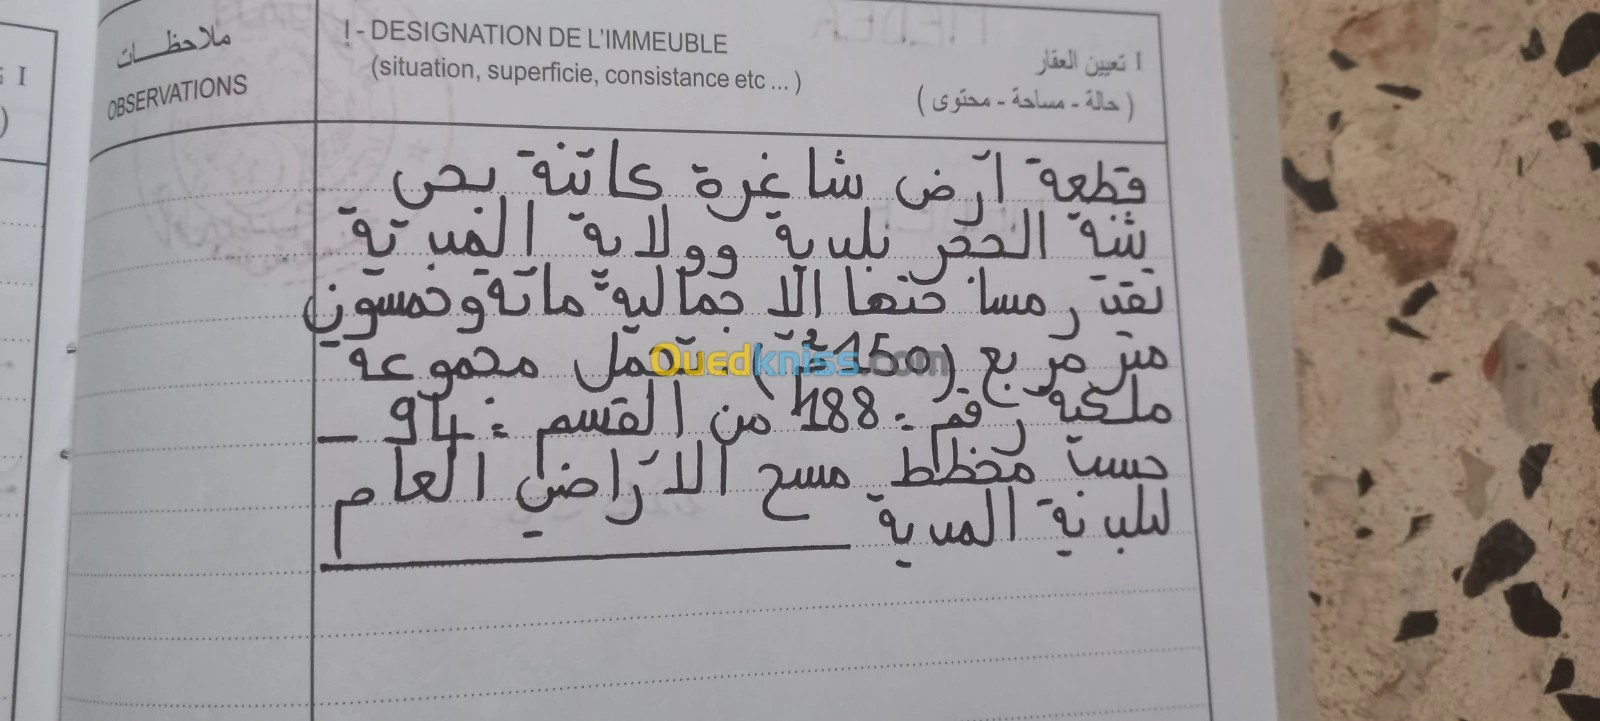 ملاحظــات
OBSERVATIONS
I - DESIGNATION DE L'IMMEUBLE
(situation, superficie, consistance etc ... )
I تعيين العقار
( حالة - مساحة - محتوى )
قطعة أرض شاغرة كائنة بحي
ثنية الحجر بلدية وولاية المدية
تقدر مساحتها الاجمالية مائة وخمسون
متر مربع (150م²) . تحمل مجموعة
ملكية رقم : 188 من القسم : 94 –
حسب مخطط مسح الأراضي العام
لبلدية المدية
Ouedkniss.com